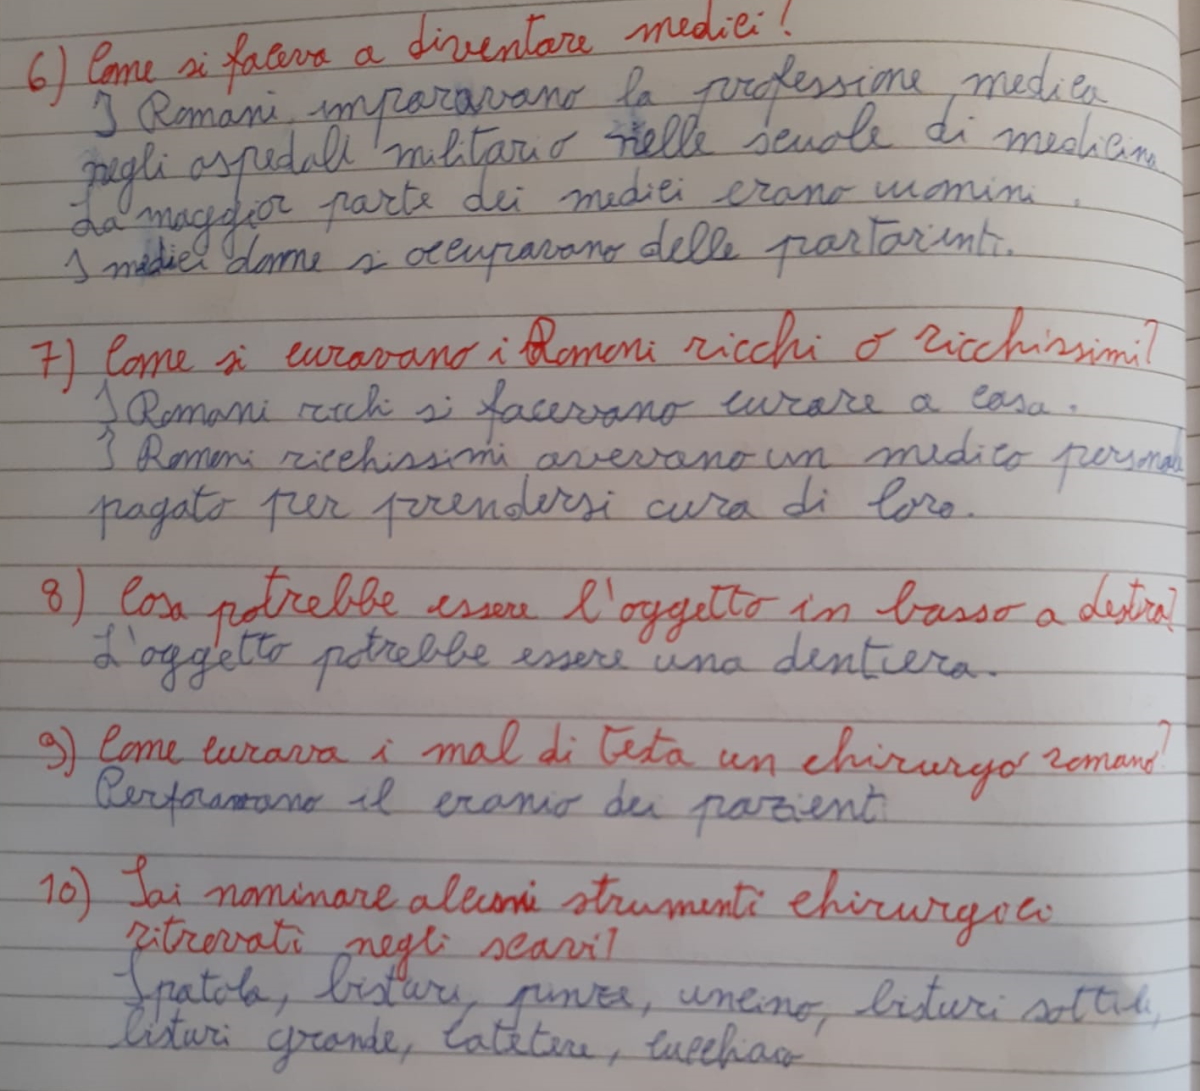 6) Come si faceva a diventare medici?
I Romani imparavano la professione medica
negli ospedali militario nelle scuole di medicina
La maggior parte dei medici erano uomini.
I medici donne si occupavano delle partorienti.
7) Come si curavano i Romani ricchi o ricchissimi?
I Romani ricchi si facevano curare a casa.
I Romani ricchissimi avevano un medico personale
pagato per prendersi cura di loro.
8) Cosa potrebbe essere l'oggetto in basso a destra?
L'oggetto potrebbe essere una dentiera.
9) Come curava i mal di testa un chirurgo romano?
Perforavano il cranio dei pazienti
10) Sai nominare alcuni strumenti chirurgici
ritrovati negli scavi?
Spatola, bisturi, pinze, uncino, bisturi sottile,
bisturi grande, catetere, cucchiaio